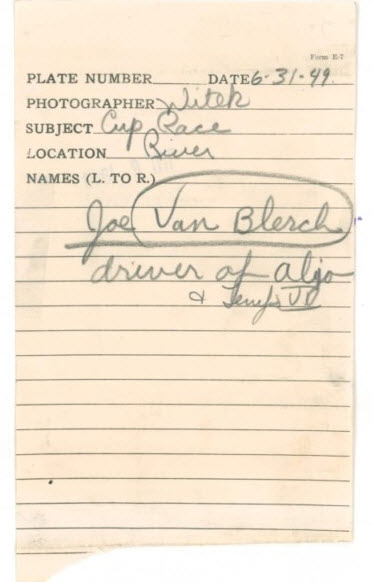 Form E-7
PLATE NUMBER DATE 6-31-49.
PHOTOGRAPHER Witek
SUBJECT Cup Race
LOCATION River
NAMES (L. TO R.)
Joe Van Blerck
driver of Aljo
& Tempo VI